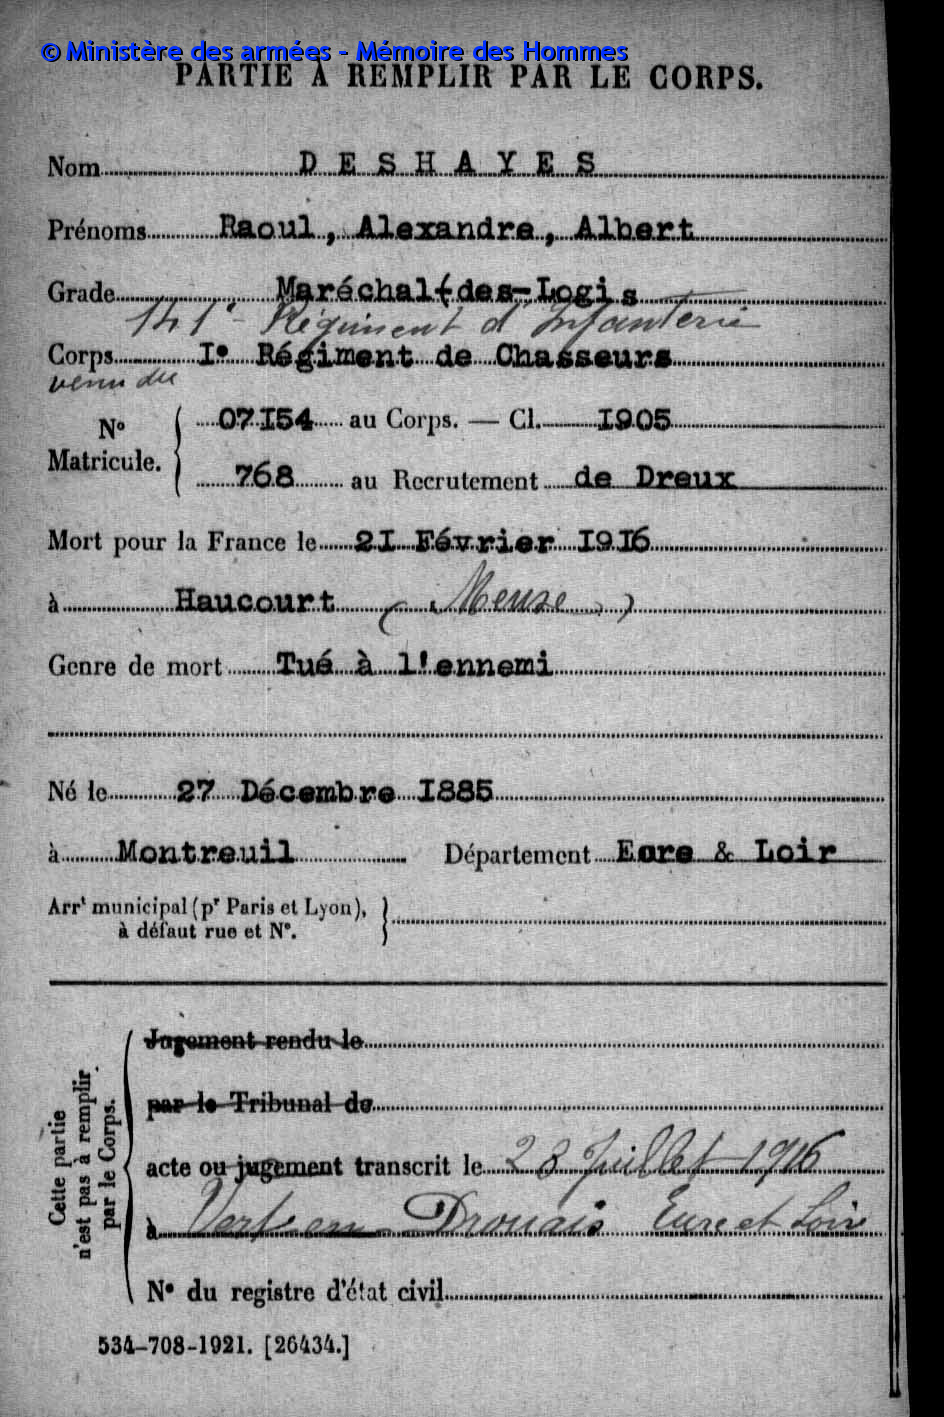 © Ministère des armées - Mémoire des Hommes
PARTIE À REMPLIR PAR LE CORPS.
Nom DESHAYES
Prénoms Raoul, Alexandre, Albert
Grade Maréchal-des-Logis
141e Régiment d'Infanterie
Corps Ie Régiment de Chasseurs
venu du
No Matricule. 07154 au Corps. — Cl. 1905
768 au Recrutement de Dreux
Mort pour la France le 21 Février 1916
à Haucourt (Meuse)
Genre de mort Tué à l'ennemi
Né le 27 Décembre 1885
à Montreuil Département Eure & Loir
Arrt municipal (pr Paris et Lyon),
à défaut rue et No.
Cette partie n'est pas à remplir par le Corps.
Jugement rendu le
par le Tribunal de
acte ou jugement transcrit le 28 Juillet 1916
à Vert-en-Drouais Eure et Loir
No du registre d'état civil
534-708-1921. [26434.]